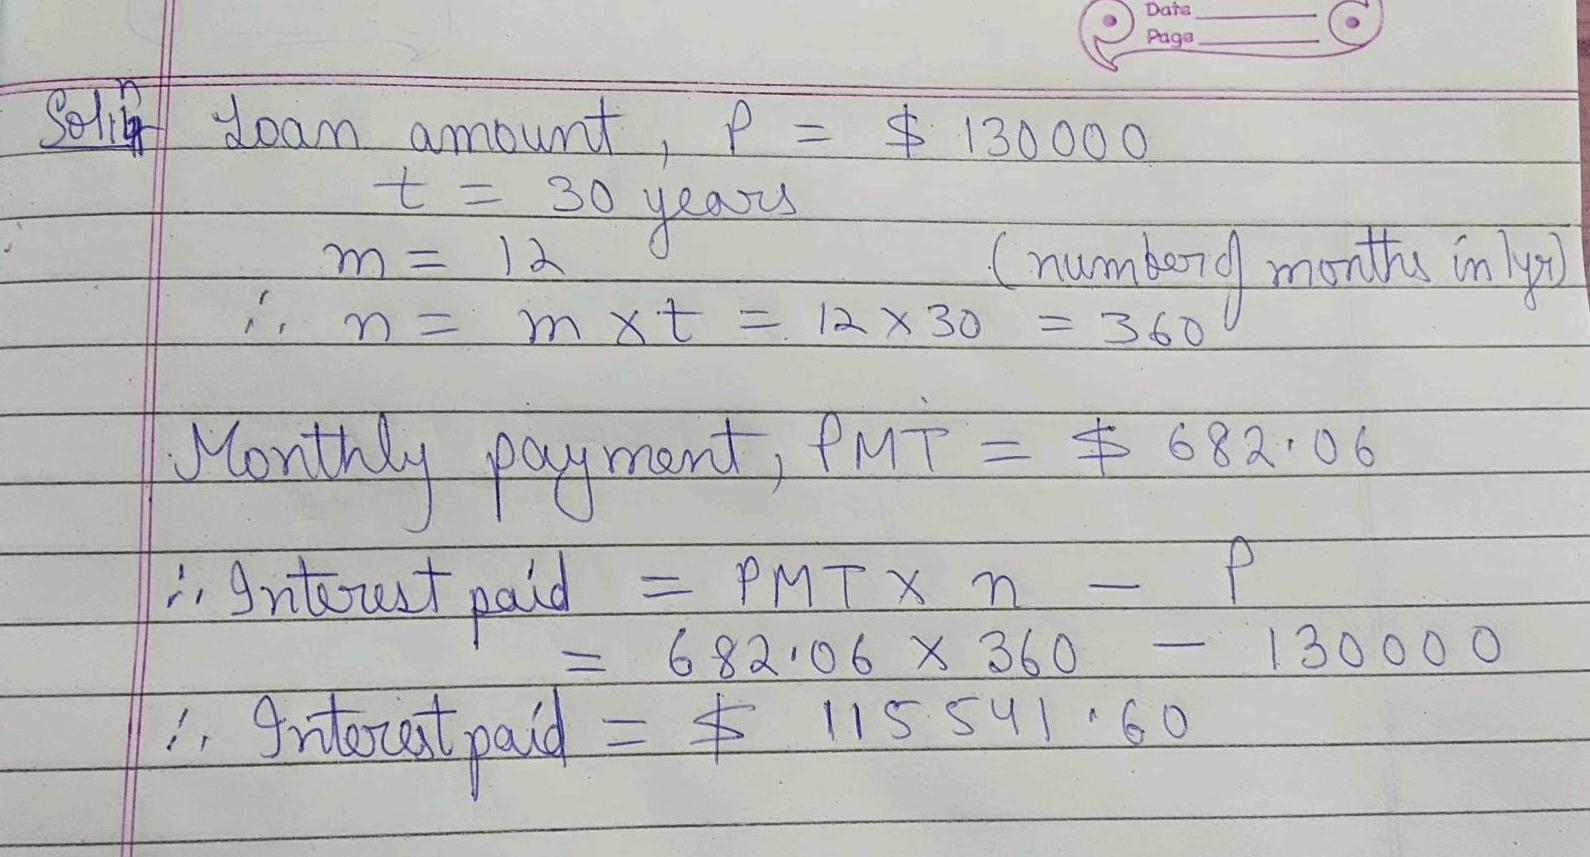 Date
Page
Soln Loan amount, P = $ 130000
t = 30 years
m = 12 (number of months in 1yr)
∴ n = m × t = 12 × 30 = 360
Monthly payment, PMT = $ 682.06
∴ Interest paid = PMT × n − P
= 682.06 × 360 − 130000
∴ Interest paid = $ 115541.60